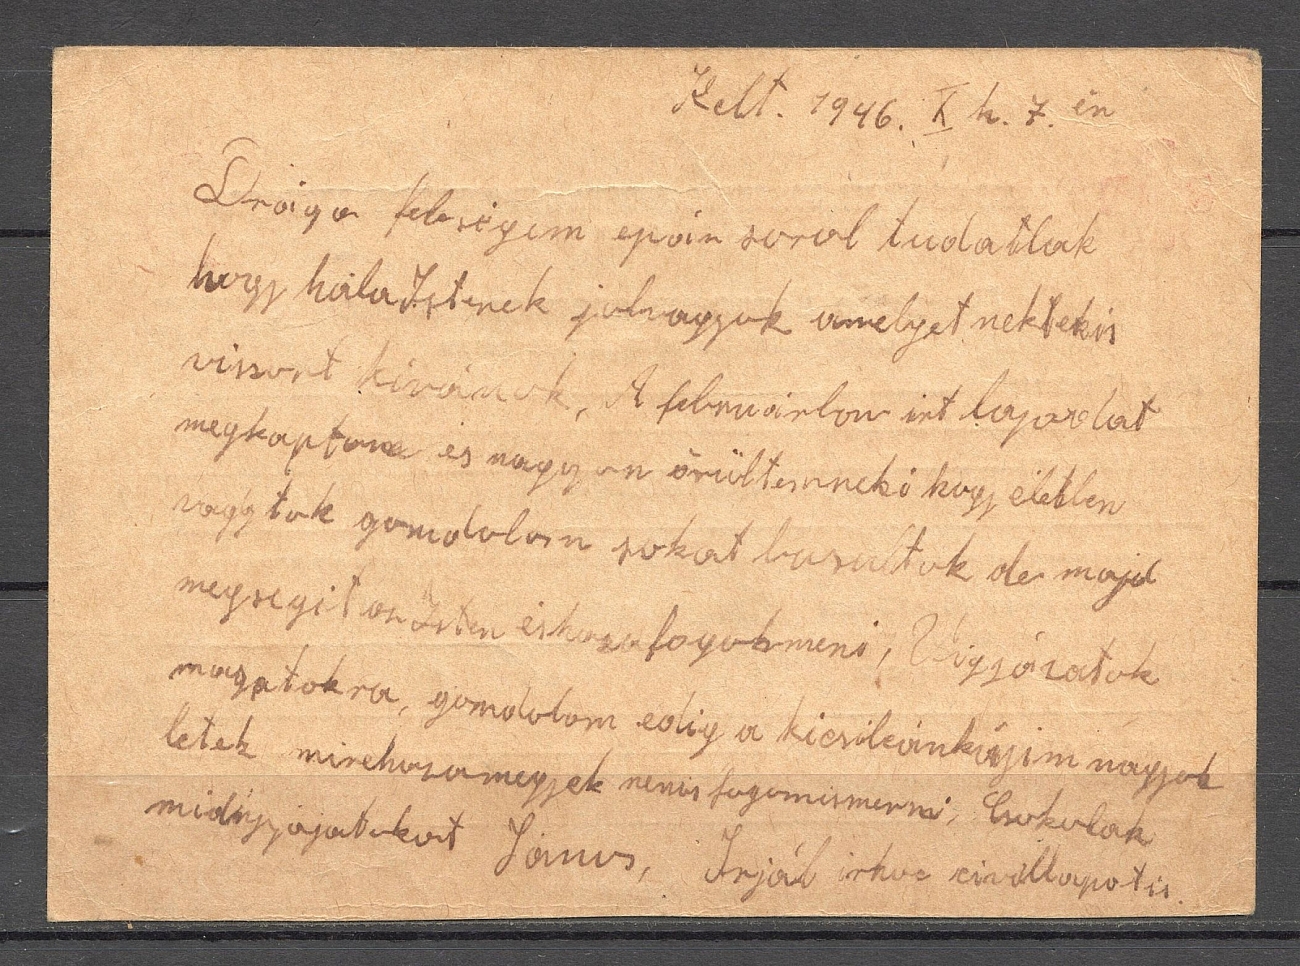 Kelt. 1946. X h. 7. én
Drága feleségem epár sorol tudatlak
hogy hála Istenek jolvagyok amelyet nektekis
viszont kivánok, A februárban irt lapodat
megkaptam és nagyon örültemneki hogy életben
vagytok gomdolom sokat busultok de majd
megsegit az Isten éshaza fogokmeni, Vigyázatok
magatokra, gomdolom edig a kicsileánkáim nagyok
letek mirehazamegyek nemis fogomismerni, Csokolak
midnyájatokat János, Irjál irhac civillapotis.